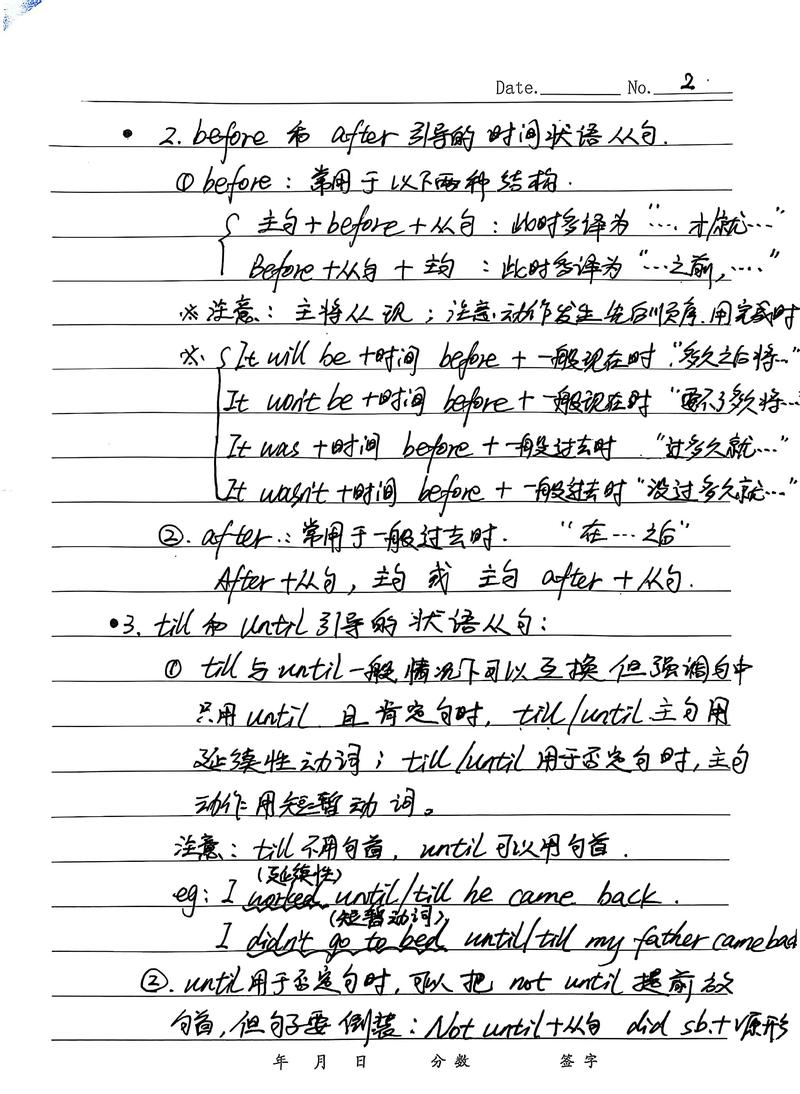 Date. No. 2
• 2. before 和 after 引导的 时间状语从句.
① before: 常用于以下两种结构.
主句+before+从句: 此时多译为 "…. 才/就…"
Before+从句 + 主句 : 此时多译为 "…之前, …."
※注意: 主将从现; 注意动作发生先后顺序, 用完成时
※. It will be +时间 before + 一般现在时. "多久之后将…"
It won't be +时间 before + 一般现在时 "要不了多久将…
It was +时间 before + 一般过去时 "过多久就…"
It wasn't +时间 before + 一般过去时 "没过多久就…"
②. after: 常用于一般过去时. "在…之后"
After+从句, 主句 或 主句 after + 从句.
•3. till 和 until 引导的 状语从句:
① till 与 until 一般情况下可以互换 但强调句中
只用 until 且 肯定句时, till/until 主句用
延续性动词; till/until 用于否定句时, 主句
动作用短暂动词。
注意: till 不用句首, until 可以用句首.
(延续性)
eg: I worked until/till he came back.
(短暂动词)
I didn't go to bed until/till my father came bac
②. until 用于否定句时, 可以把 not until 提前放
句首, 但句子要倒装: Not until+从句 did sb.+v原形
年 月 日 分数 签字